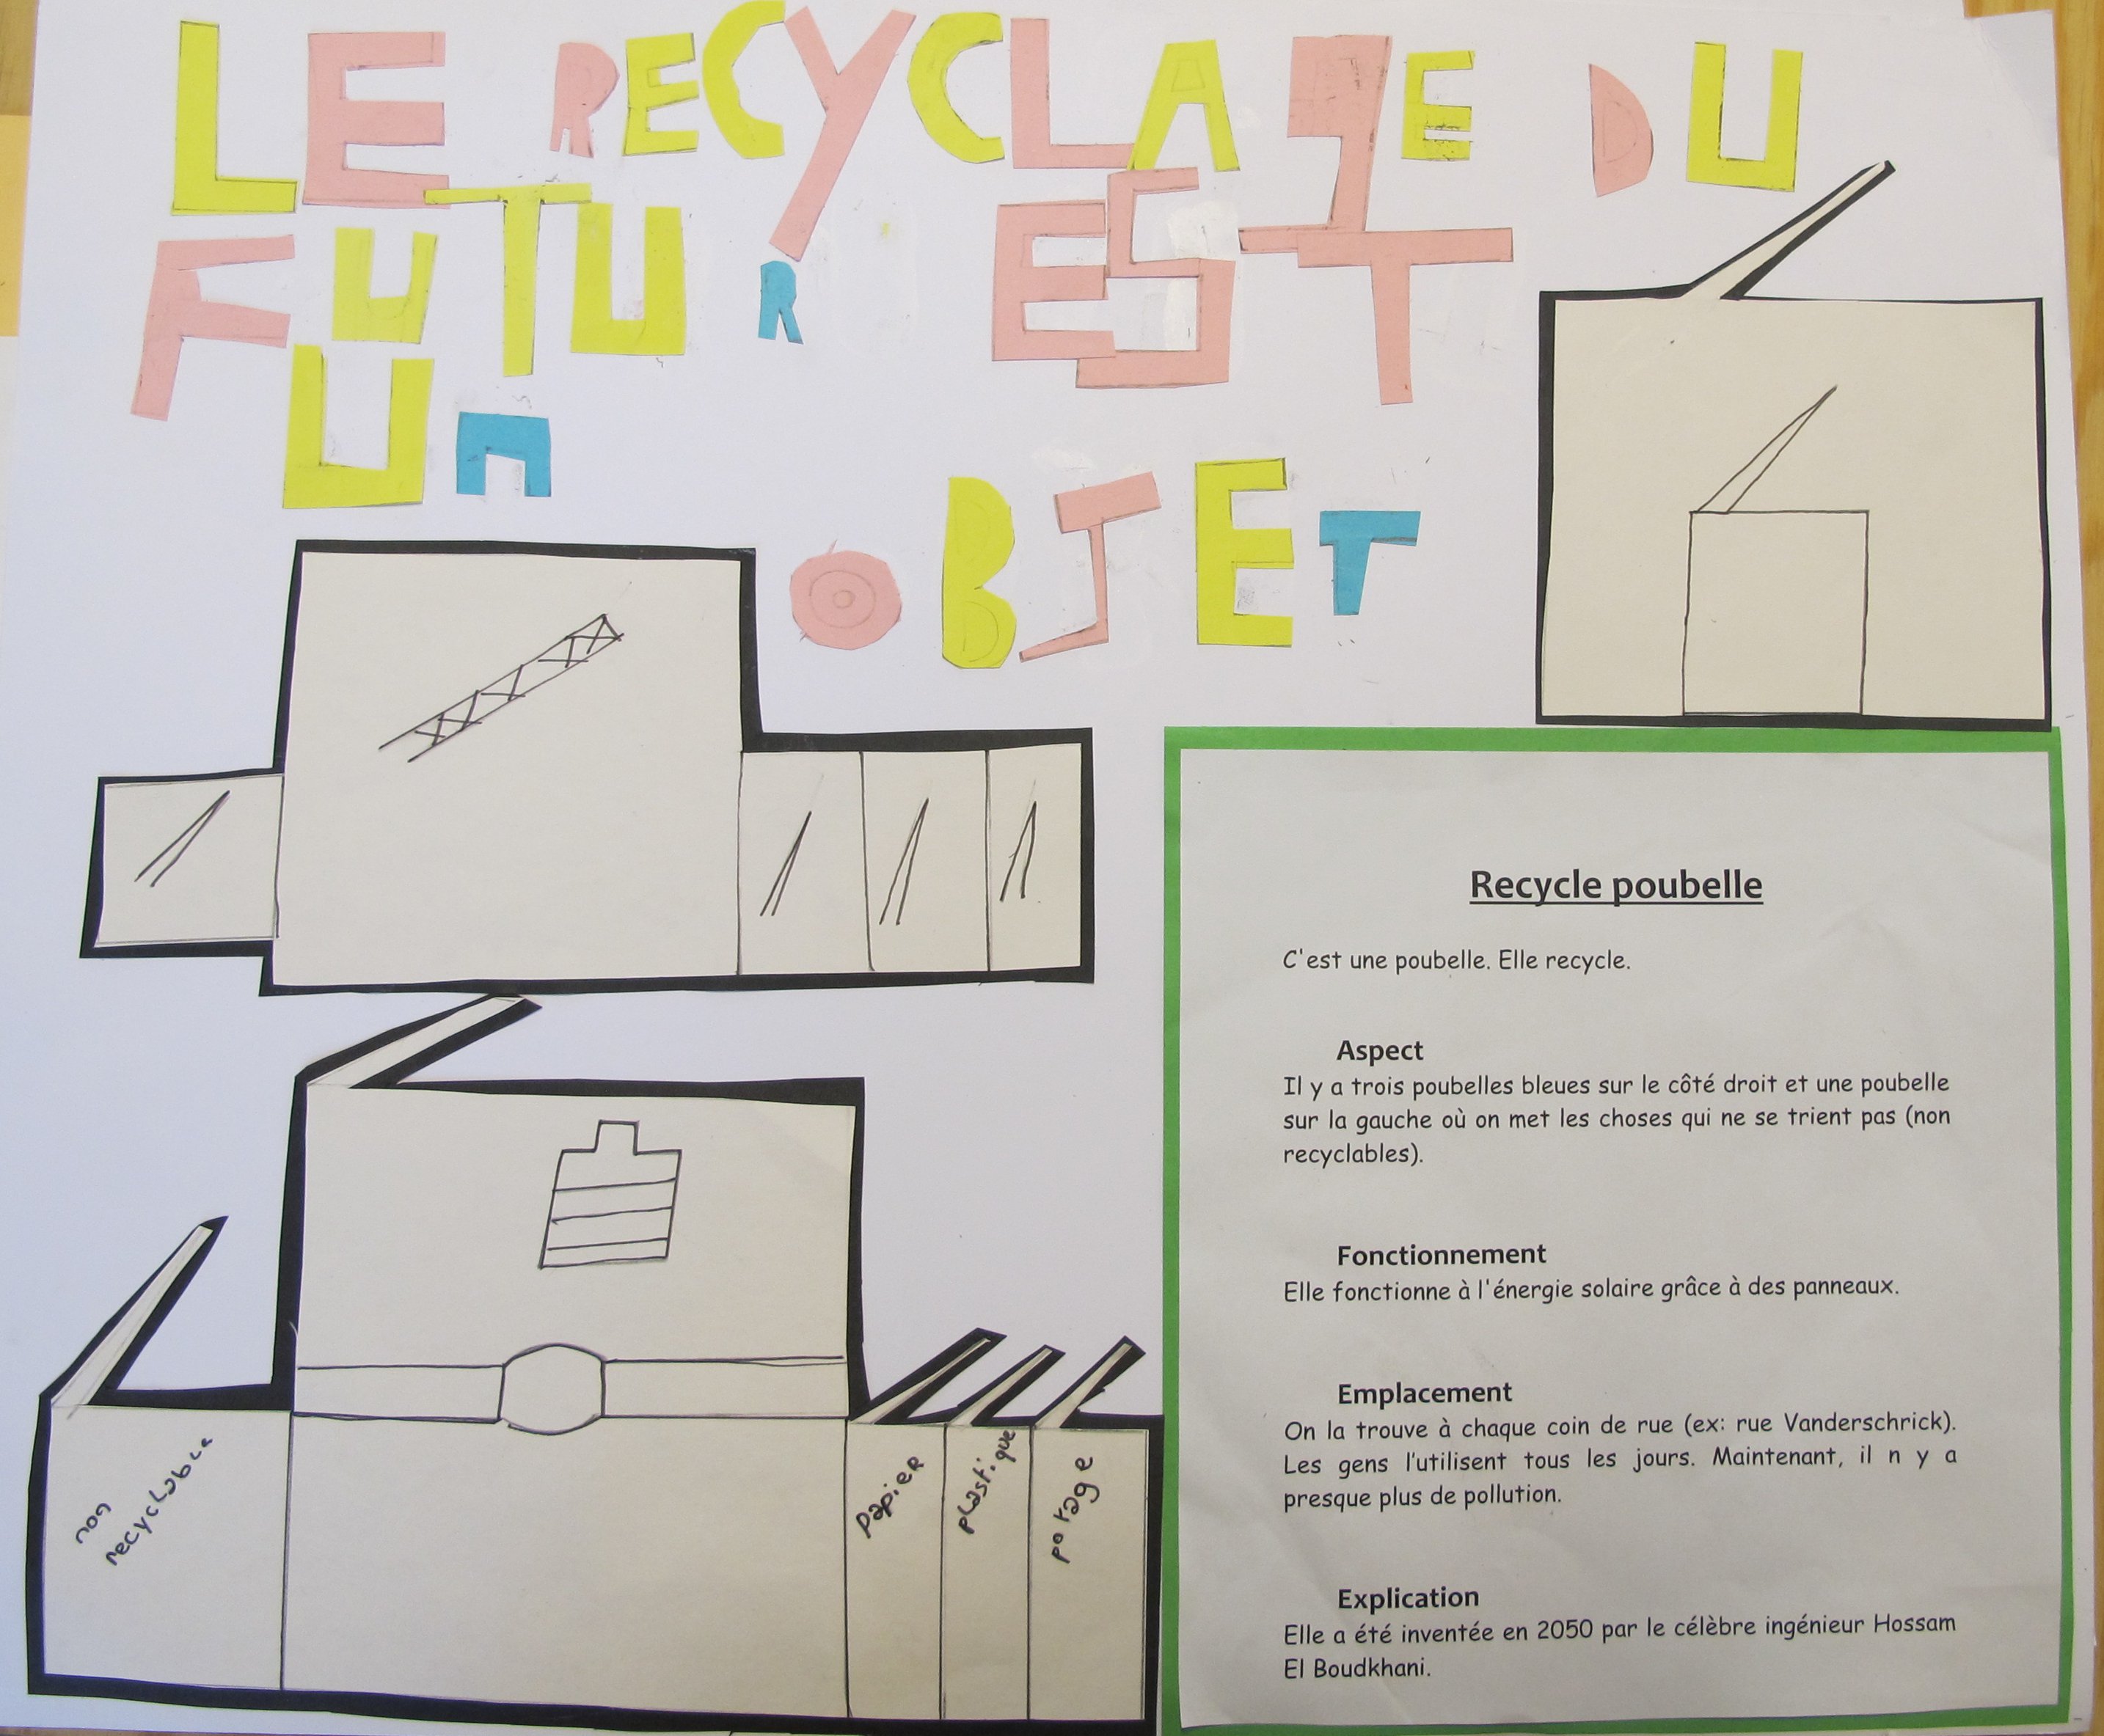 LE RECYCLAgE DU
FUTUR EST
Un
OBJET
non
recyclable
papier
plastique
potage
Recycle poubelle
C'est une poubelle. Elle recycle.
Aspect
Il y a trois poubelles bleues sur le côté droit et une poubelle
sur la gauche où on met les choses qui ne se trient pas (non
recyclables).
Fonctionnement
Elle fonctionne à l'énergie solaire grâce à des panneaux.
Emplacement
On la trouve à chaque coin de rue (ex: rue Vanderschrick).
Les gens l'utilisent tous les jours. Maintenant, il n y a
presque plus de pollution.
Explication
Elle a été inventée en 2050 par le célèbre ingénieur Hossam
El Boudkhani.